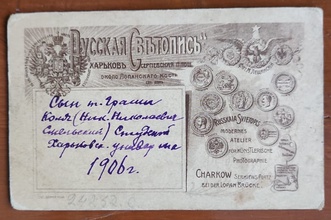 "Русская Свѣтопись"
ХАРЬКОВЪ Сергіевская площ.
около Лопанскаго моста
Сын т. Граши
Коля (Ник. Николаевич
Студент
Харьковск. универ-та
1906 г.
"Russkaja Swetopis"
MODERNES
ATELIER
FÜR KÜNSTLERISCHE
PHOTOGRAPHIE
CHARKOW SERGIEWS-PLATZ
BEI DER LOPAN BRÜCKE